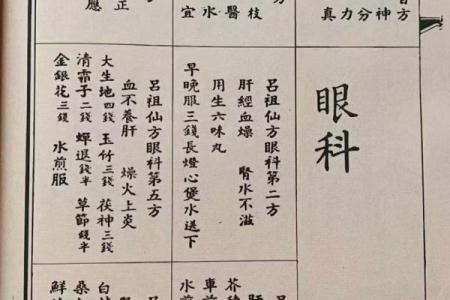 方
神
分
力
真
方
枝
醫
水
宜
正
應
眼科
呂祖仙方眼科第二方
肝經血燥 腎水不滋
用生六味丸
早晚服三錢長燈心煲水送下
呂祖仙方眼科第五方
血不養肝 燥火上炎
大生地四錢 玉竹三錢 茯神三錢
清霜子二錢 蟬退錢半 草節錢半
金銀花三錢 水煎服
呂
肝
芥
車
水
白
桑
鮮